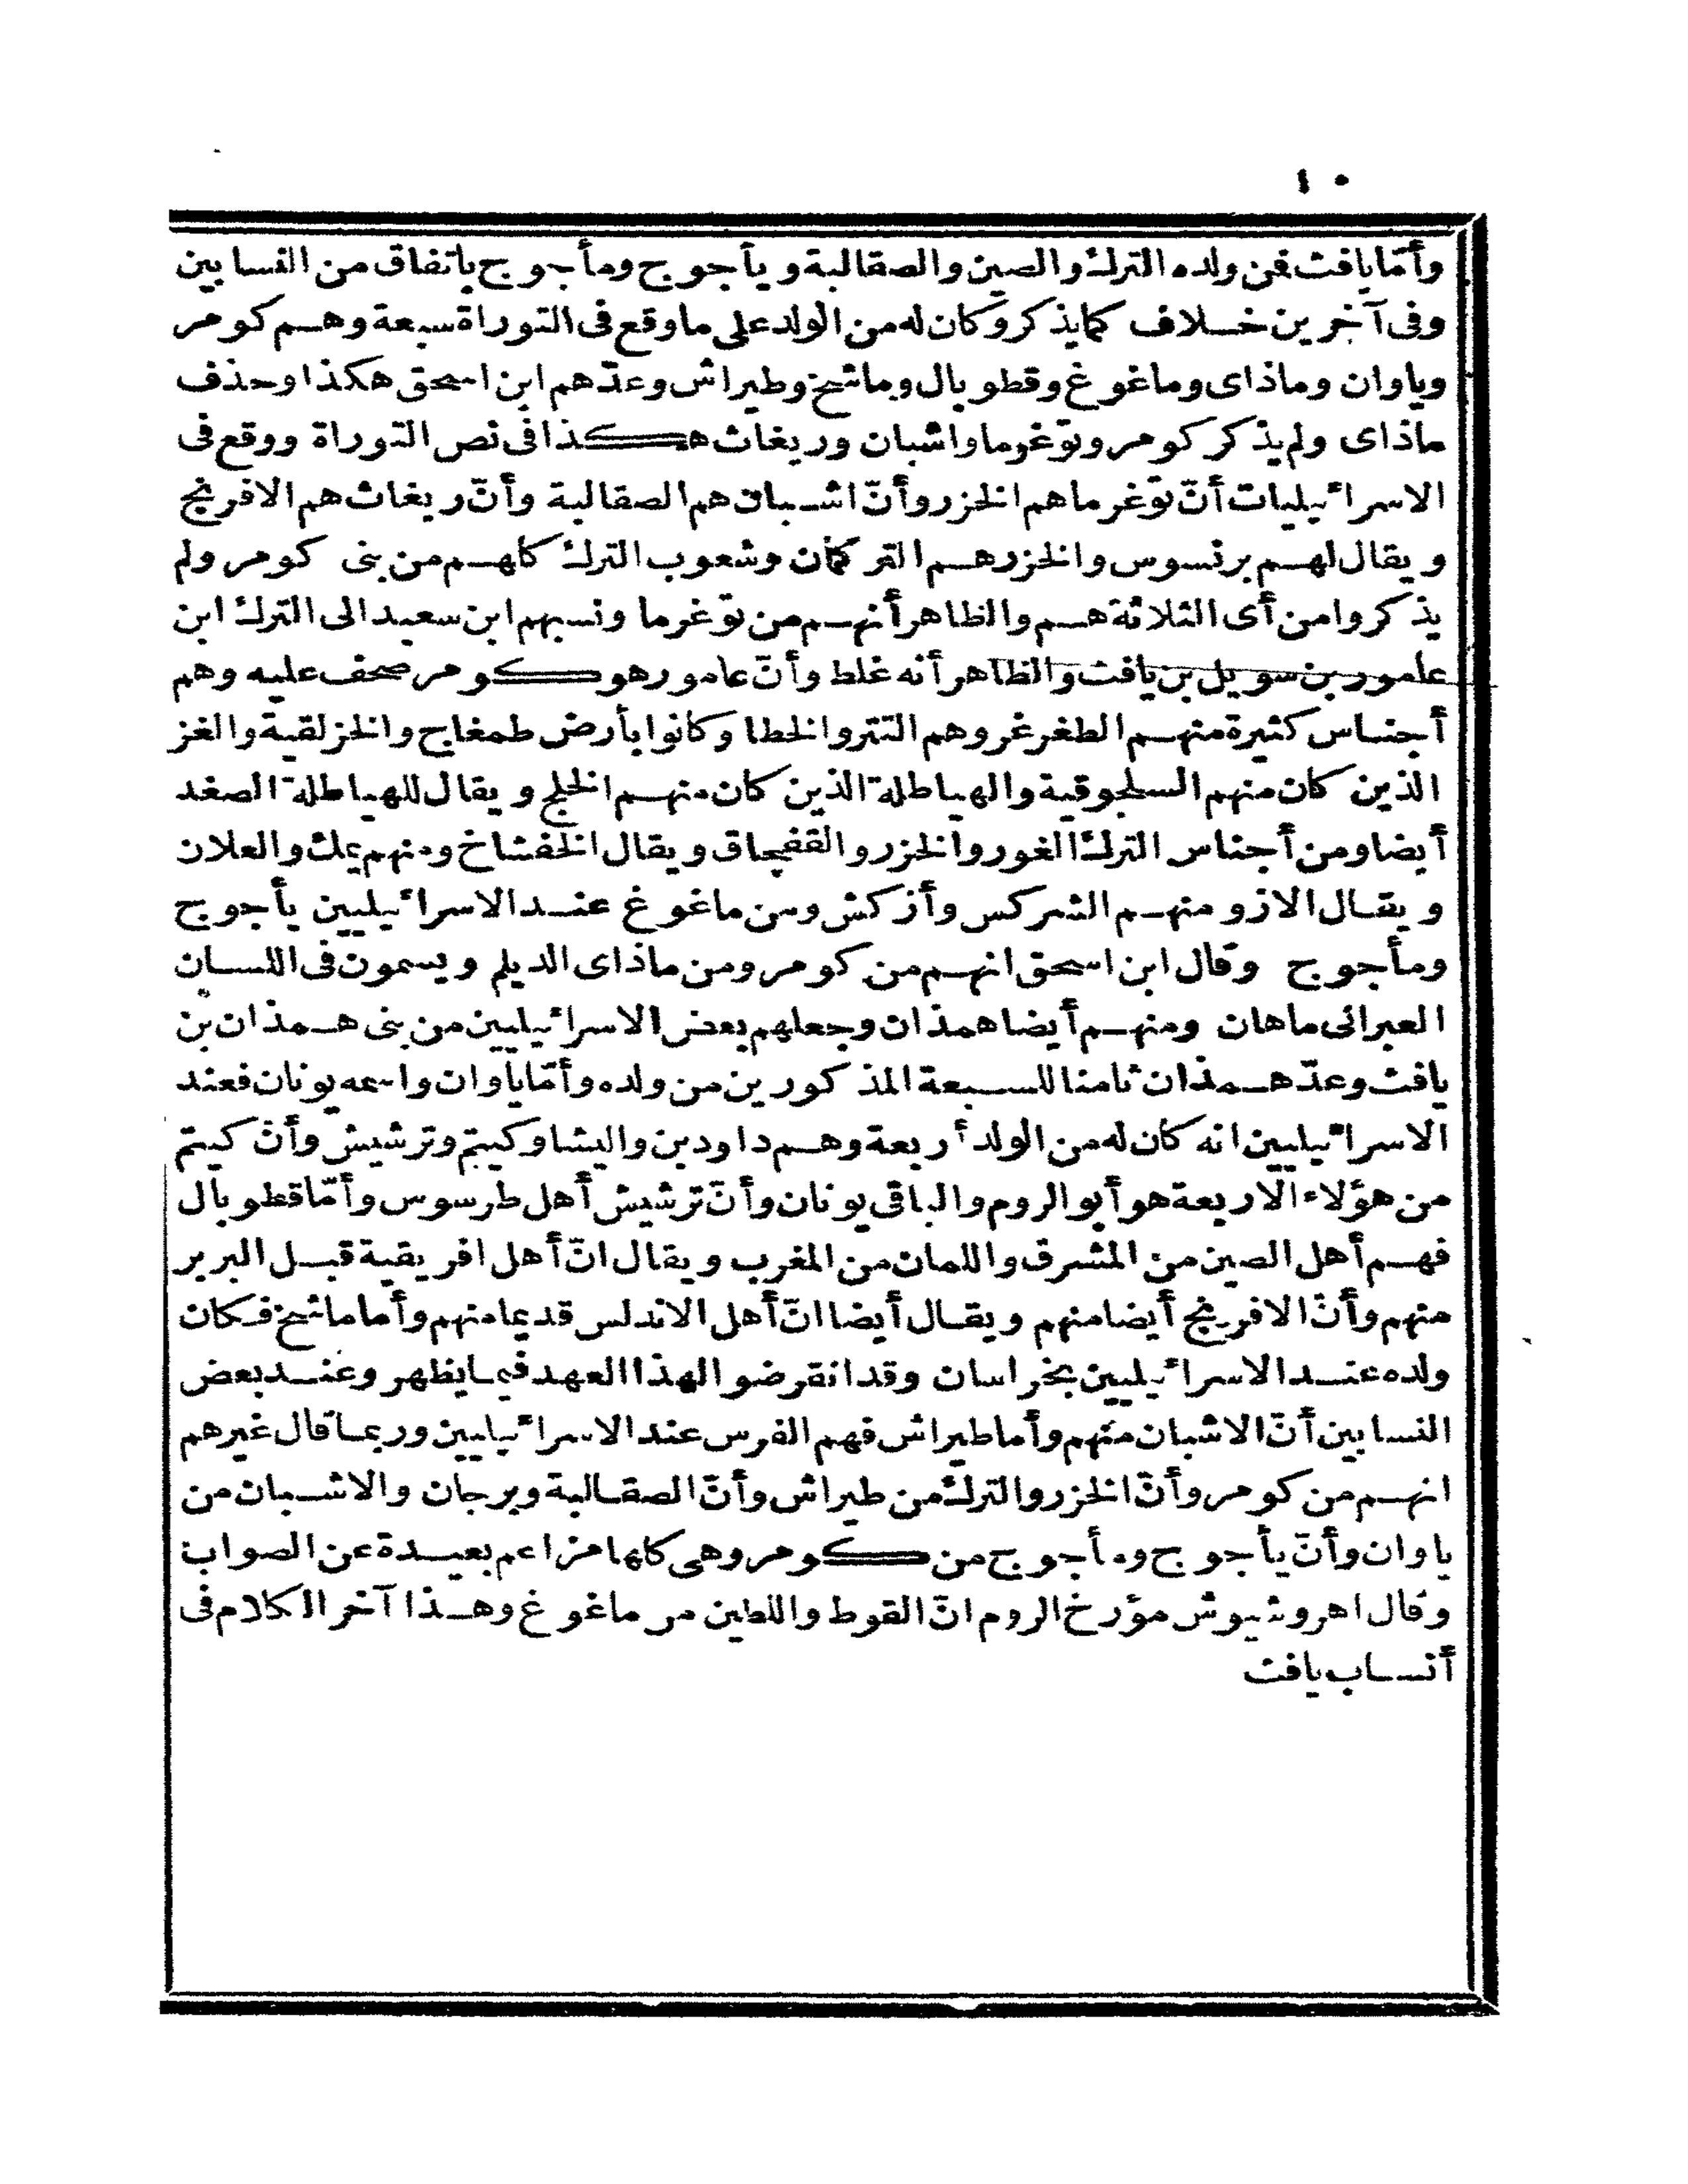 ١٠
وأمّا يافث فمن ولده الترك والصين والصقالبة و يأجوج ومأجوج باتفاق من النسابين
وفى آخرين خلاف كما يذكر وكان له من الولد على ما وقع فى التوراة سبعة وهم كومر
وياوان وماذاى وماغوغ وقطوبال وماشخ وطيراش وعدّهم ابن اسحق هكذا وحذف
ماذاى ولم يذكر كومر وتوّغرما واشبان وريغاث هكذا فى نص التوراة ووقع فى
الاسرائيليات أنّ توّغرما هم الخزر وأنّ اشبان هم الصقالبة وأنّ ريغاث هم الافرنج
ويقال لهم برنسوس والخزر هم التركمان وشعوب الترك كلهم من بنى كومر ولم
يذكروا من أى الثلاثة هم والظاهر أنهم من توّغرما ونسبهم ابن سعيد الى الترك ابن
عامور بن سويل بن يافث والظاهر أنه غلط وأنّ عامور هو كومر صحف عليه وهم
أجناس كثيرة منهم الطغرغر وهم التتر والخطا وكانوا بأرض طمغاج والخزلقية والغز
الذين كان منهم السلجوقية والهياطلة الذين كان منهم الخلج ويقال للهياطلة الصغد
أيضا ومن أجناس الترك الغور والخزر والقفجاق ويقال الخفشاخ ومنهم يمك والعلان
ويقال الازو منهم الشركس وأزكش ومن ماغوغ عند الاسرائيليين يأجوج
ومأجوج وقال ابن اسحق انهم من كومر ومن ماذاى الديلم ويسمون فى اللسان
العبرانى ماهان ومنهم أيضا همذان وجعلهم بعض الاسرائيليين من بنى همذان بن
يافث وعدّ همذان ثامنا للسبعة المذكورين من ولده وأمّا ياوان واسمه يونان فعند
الاسرائيليين انه كان له من الولد أربعة وهم داودين واليشا وكيتم وترشيش وأنّ كيتم
من هؤلاء الاربعة هو أبو الروم والباقى يونان وأنّ ترشيش أهل طرسوس وأمّا قطوبال
فهم أهل الصين من المشرق واللمان من المغرب ويقال انّ أهل افريقية قبل البربر
منهم وأنّ الافرنج أيضا منهم ويقال أيضا انّ أهل الاندلس قديما منهم وأما ماشخ فكان
ولده عند الاسرائيليين بخراسان وقد انقرضوا لهذا العهد فيما يظهر وعند بعض
النسابين أنّ الاشبان منهم وأما طيراش فهم الفرس عند الاسرائيليين وربما قال غيرهم
انهم من كومر وأنّ الخزر والترك من طيراش وأنّ الصقالبة وبرجان والاشبان من
ياوان وأنّ يأجوج ومأجوج من كومر وهى كلها مزاعم بعيدة عن الصواب
وقال اهروشيوش مؤرخ الروم انّ القوط واللطين من ماغوغ وهذا آخر الكلام فى
أنساب يافث